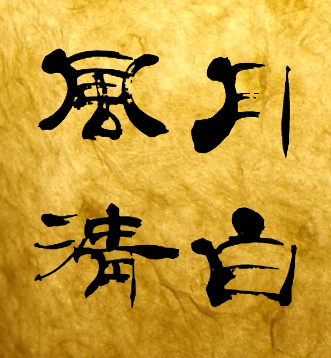 風月
清白